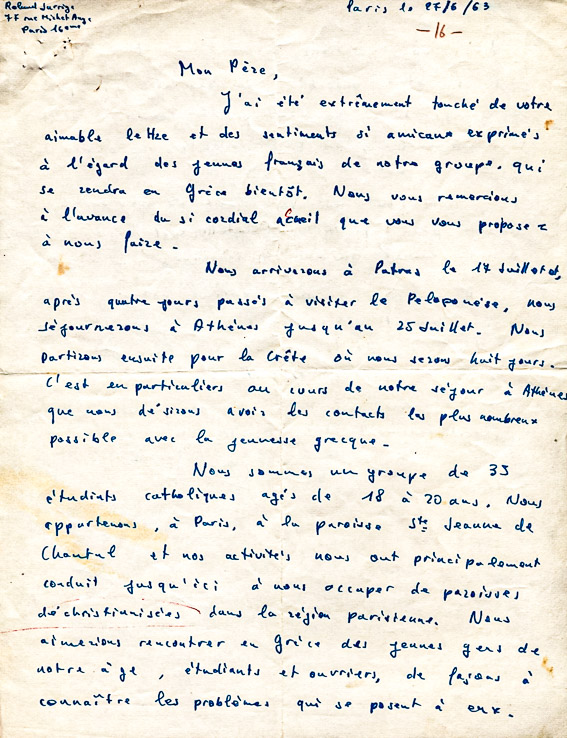 Roland Jarrige
77 rue Michel Ange
Paris 16ème
Paris le 27/6/63
-16-
Mon Père,
J'ai été extrêmement touché de votre
aimable lettre et des sentiments si amicaux exprimés
à l'égard des jeunes français de notre groupe. qui
se rendra en Grèce bientôt. Nous vous remercions
à l'avance du si cordial accueil que vous vous proposez
à nous faire.
Nous arriverons à Patras le 17 Juillet et,
après quatre jours passés à visiter le Péloponèse, nous
séjournerons à Athènes jusqu'au 25 Juillet. Nous
partirons ensuite pour la Crête où nous serons huit jours.
C'est en particuliers au cours de notre séjour à Athènes
que nous désirons avoir les contacts les plus nombreux
possible avec la jeunesse grecque.
Nous sommes un groupe de 35
étudiants catholiques agés de 18 à 20 ans. Nous
appartenons, à Paris, à la paroisse Ste Jeanne de
Chantal et nos activités nous ont principalement
conduit jusqu'ici à nous occuper de paroisses
déchristianisées dans la région parisienne. Nous
aimerions rencontrer en Grèce des jeunes gens de
notre âge, étudiants et ouvriers, de façons à
connaître les problèmes qui se posent à eux.